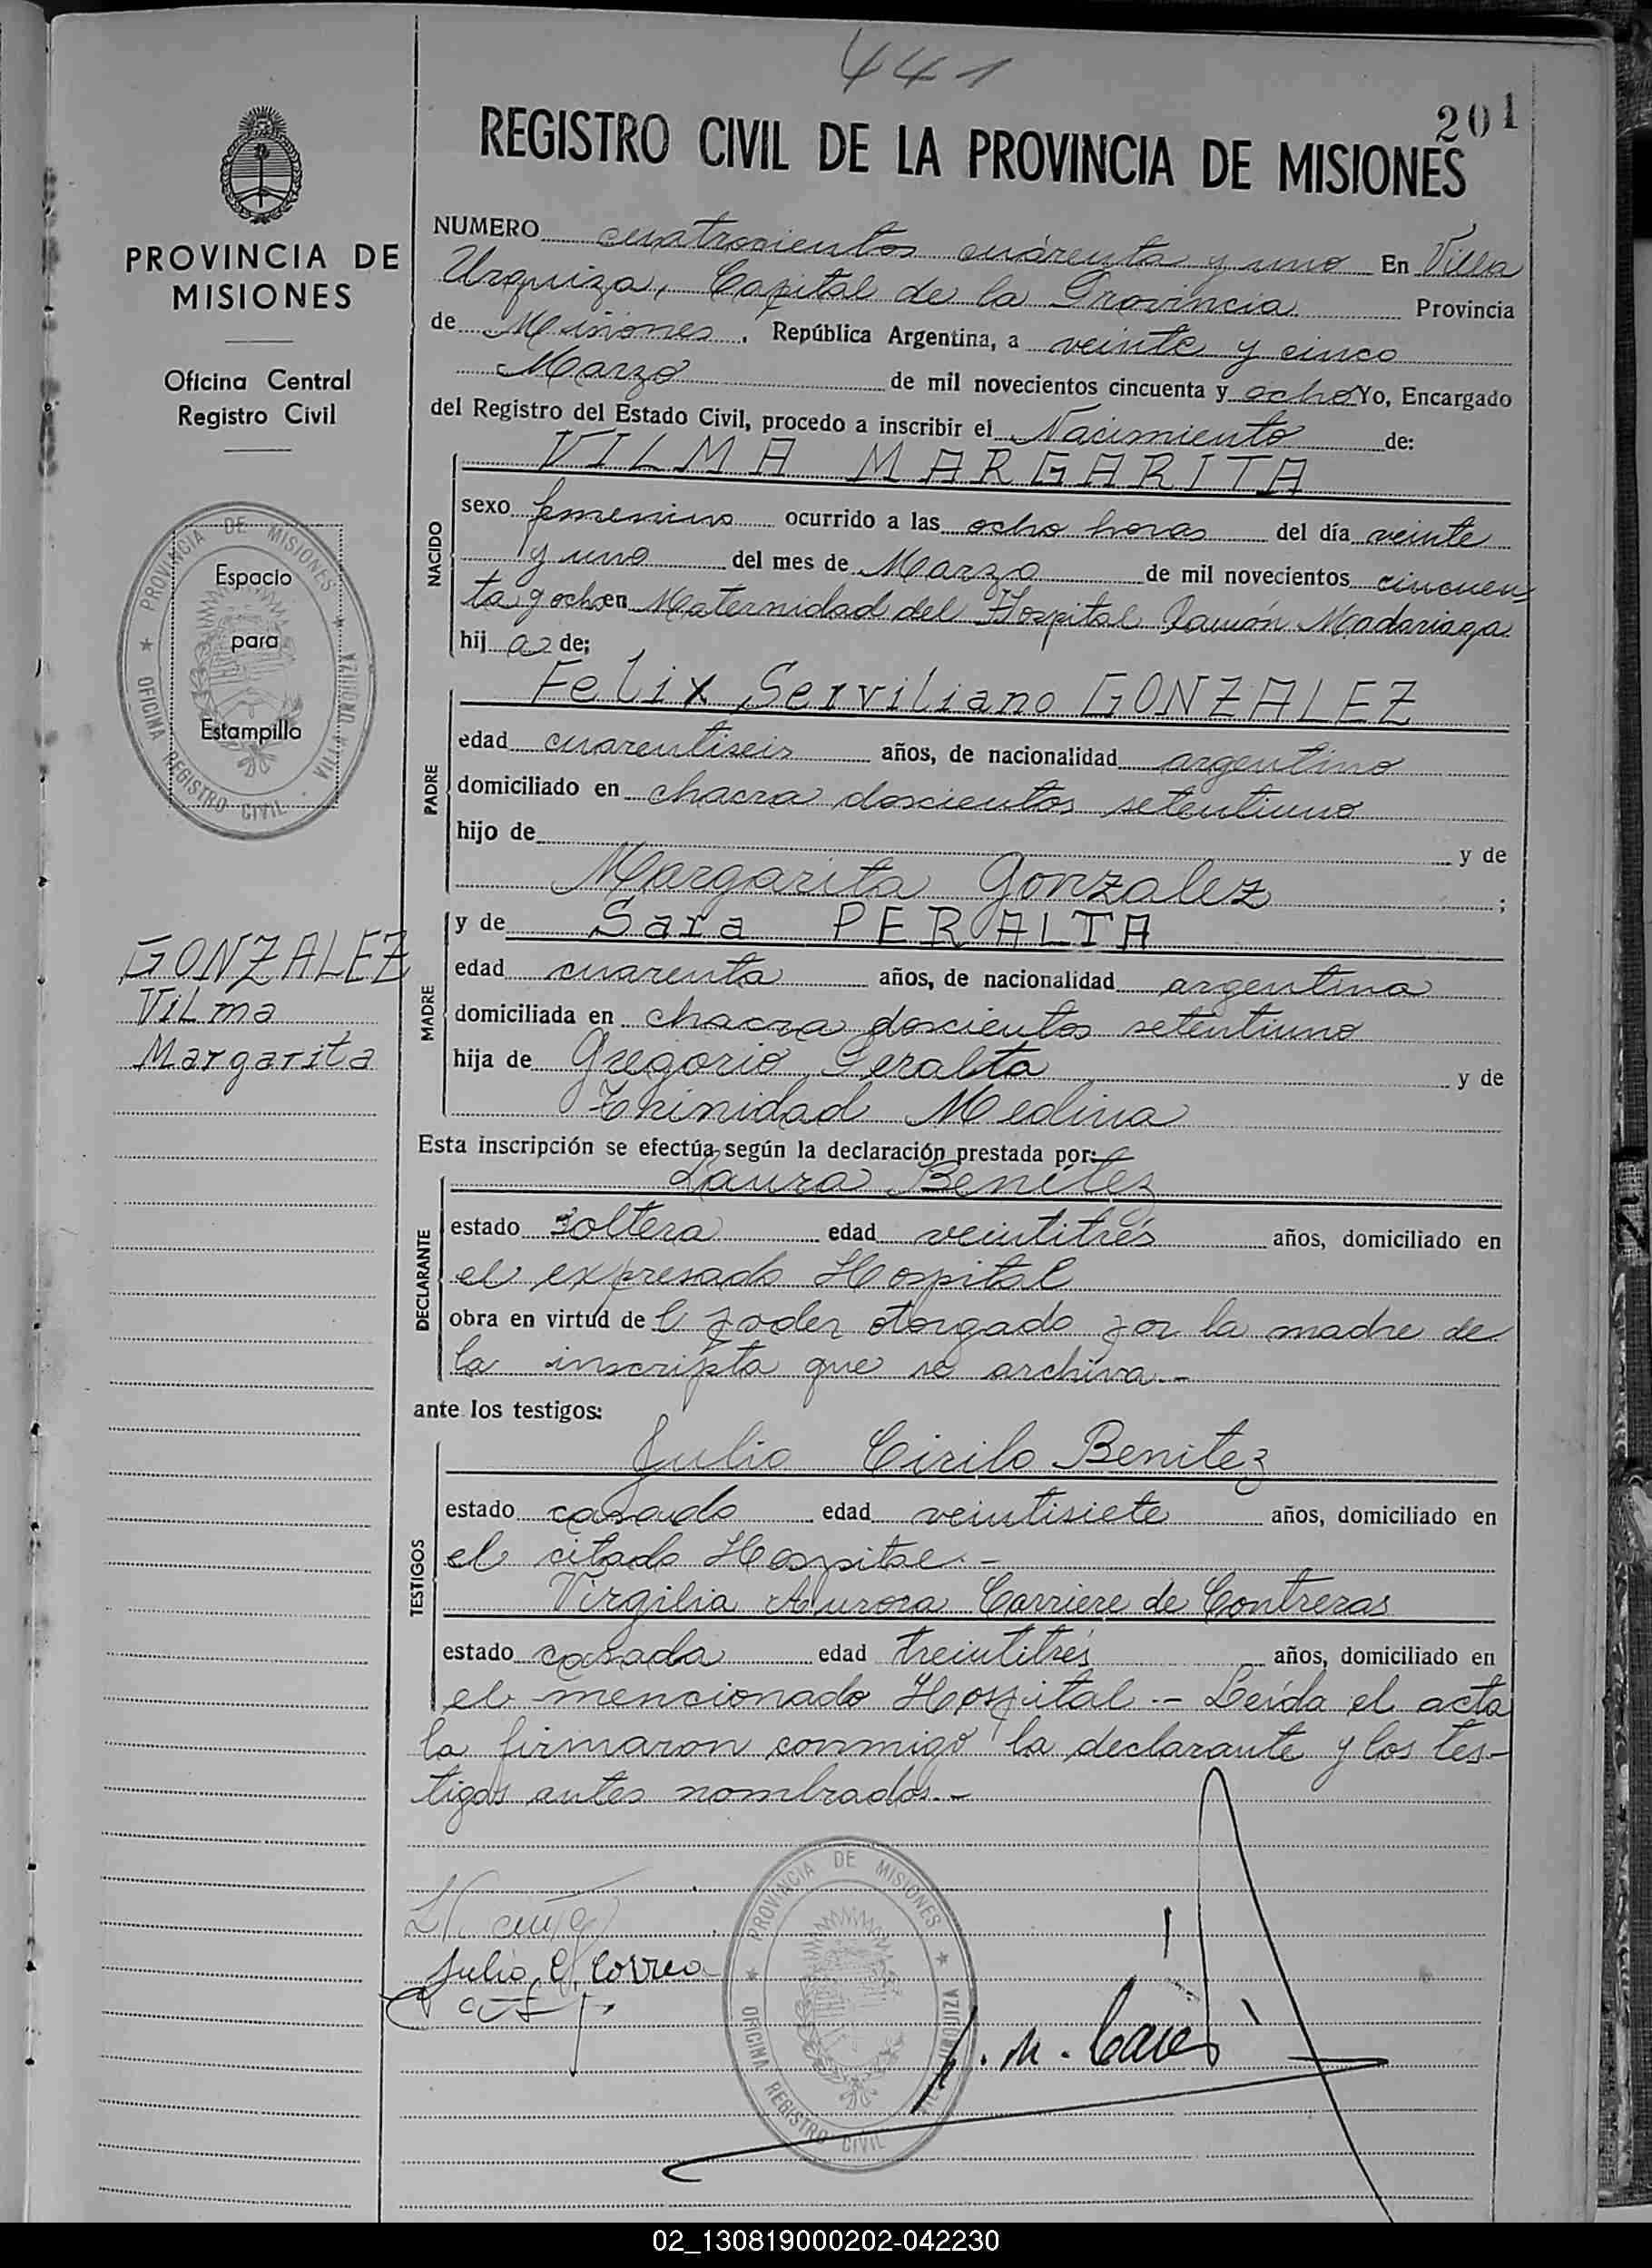 441
201
REGISTRO CIVIL DE LA PROVINCIA DE MISIONES
PROVINCIA DE
MISIONES
Oficina Central
Registro Civil
PROVINCIA DE MISIONES ★ VILLA URQUIZA
★ OFICINA REGISTRO CIVIL
Espacio
para
Estampilla
GONZALEZ
Vilma
Margarita
NUMERO cuatrocientos cuarenta y uno En Villa
Urquiza, Capital de la Provincia Provincia
de Misiones, República Argentina, a veinte y cinco
Marzo de mil novecientos cincuenta y ocho Yo, Encargado
del Registro del Estado Civil, procedo a inscribir el Nacimiento de:
NACIDO
VILMA MARGARITA
sexo femenino ocurrido a las ocho horas del día veinte
y uno del mes de Marzo de mil novecientos cincuen-
ta y ocho en Maternidad del Hospital Ramón Madariaga
hij a de;
PADRE
Felix Serviliano GONZALEZ
edad cuarentiseis años, de nacionalidad argentino
domiciliado en chacra doscientos setentiuno
hijo de y de
Margarita Gonzalez ;
MADRE
y de Sara PERALTA
edad cuarenta años, de nacionalidad argentina
domiciliada en chacra doscientos setentiuno
hija de Gregorio Peralta y de
Trinidad Medina
Esta inscripción se efectúa según la declaración prestada por:
DECLARANTE
Laura Benítez
estado soltera edad veintitrés años, domiciliado en
el expresado Hospital
obra en virtud de l poder otorgado por la madre de
la inscripta que se archiva.-
ante los testigos:
TESTIGOS
Julio Cirilo Benitez
estado casado edad veintisiete años, domiciliado en
el citado Hospital.-
Virgilia Aurora Carriere de Contreras
estado casada edad treintitrés años, domiciliado en
el mencionado Hospital.- Leída el acta
la firmaron conmigo la declarante y los tes-
tigos antes nombrados.-
Julio C. Correa
PROVINCIA DE MISIONES ★ VILLA URQUIZA
★ OFICINA REGISTRO CIVIL
02_130819000202-042230